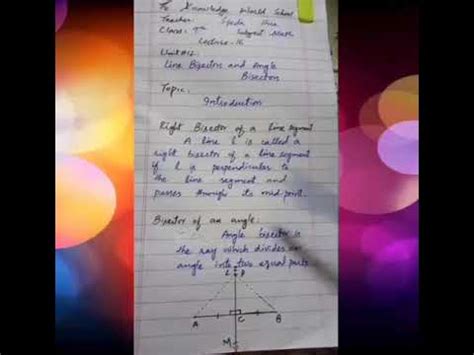 To Knowledge World School
Teacher: Syeda Hira
Class: 9th Subject Math
Lecture-16
Unit #12
Line Bisectors and Angle
Bisectors
Topic:
Introduction
Right Bisector of a line segment
A line l is called a
right bisector of a line segment
if l is perpendicular to
the line segment and
passes through its mid-point.
Bisector of an angle:
Angle bisector is
the ray which divides an
angle into two equal parts.
L P
A C B
M